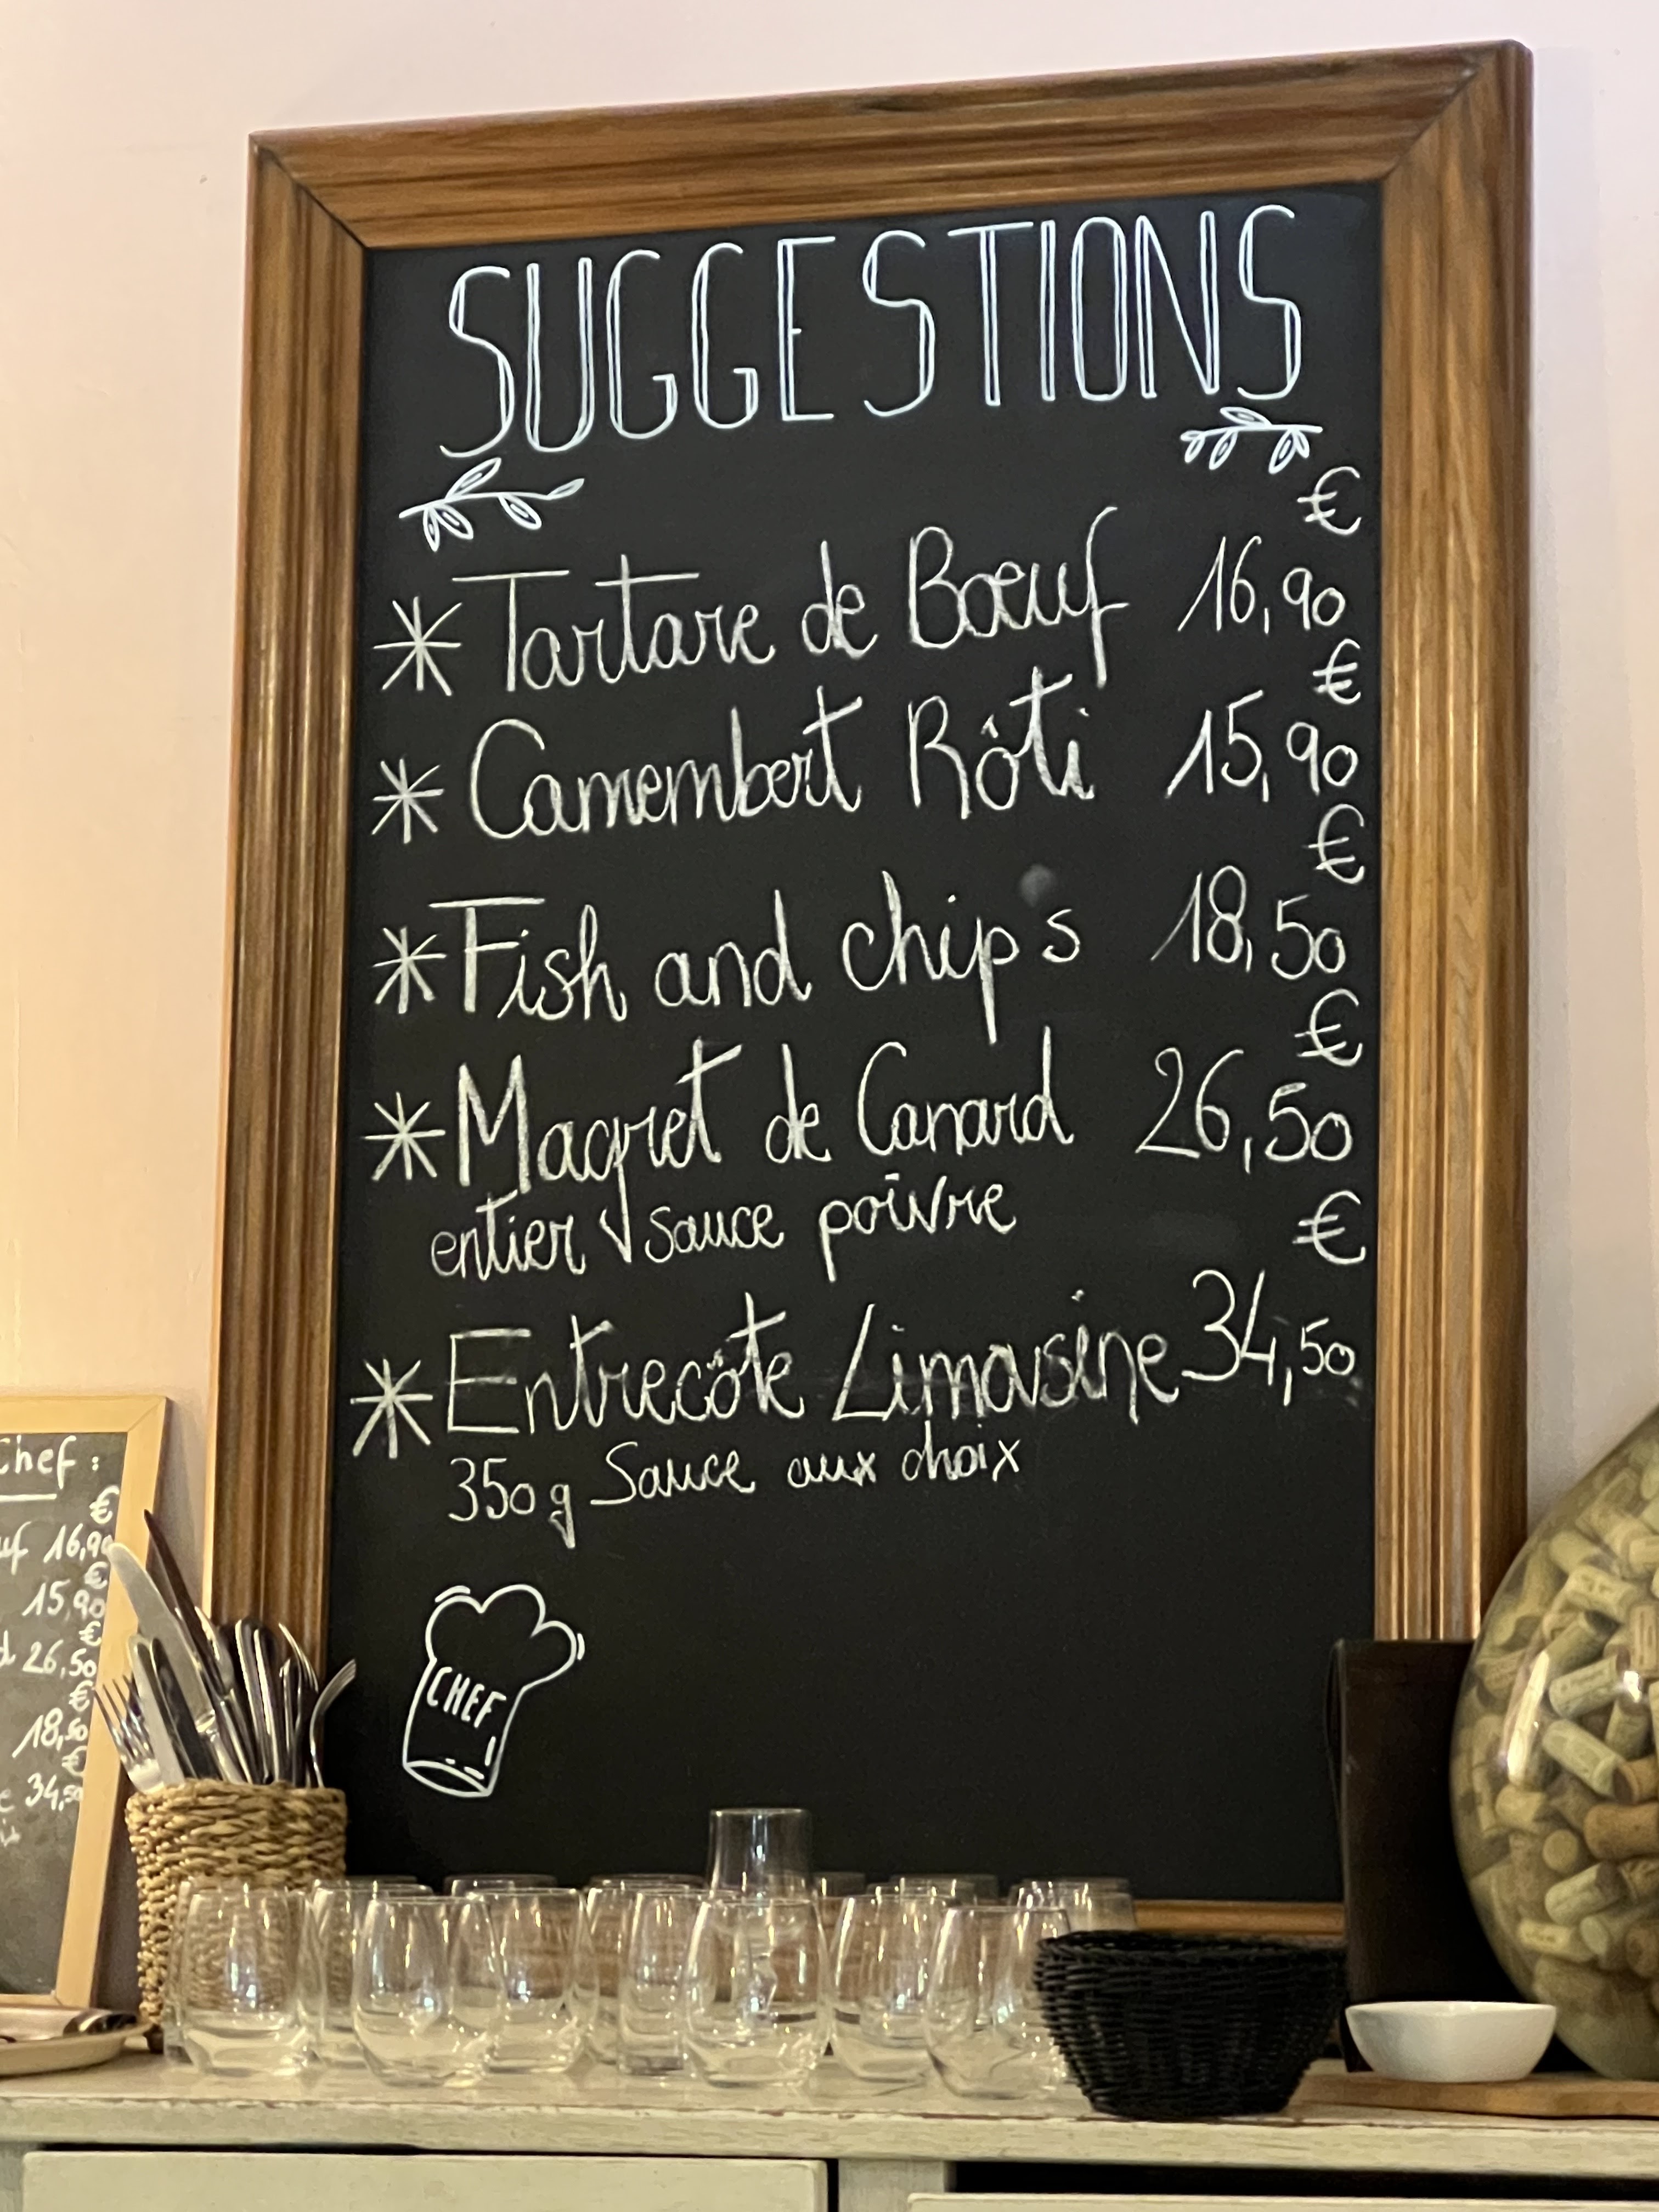 SUGGESTIONS
€
* Tartare de Bœuf 16,90
€
* Camembert Rôti 15,90
€
* Fish and chip's 18,50
€
* Magret de Canard 26,50
entier √ sauce poivre
€
* Entrecôte Limousine 34,50
350g Sauce aux choix
CHEF
Chef :
€
16,90
€
15,90
€
26,50
€
18,50
€
34,50